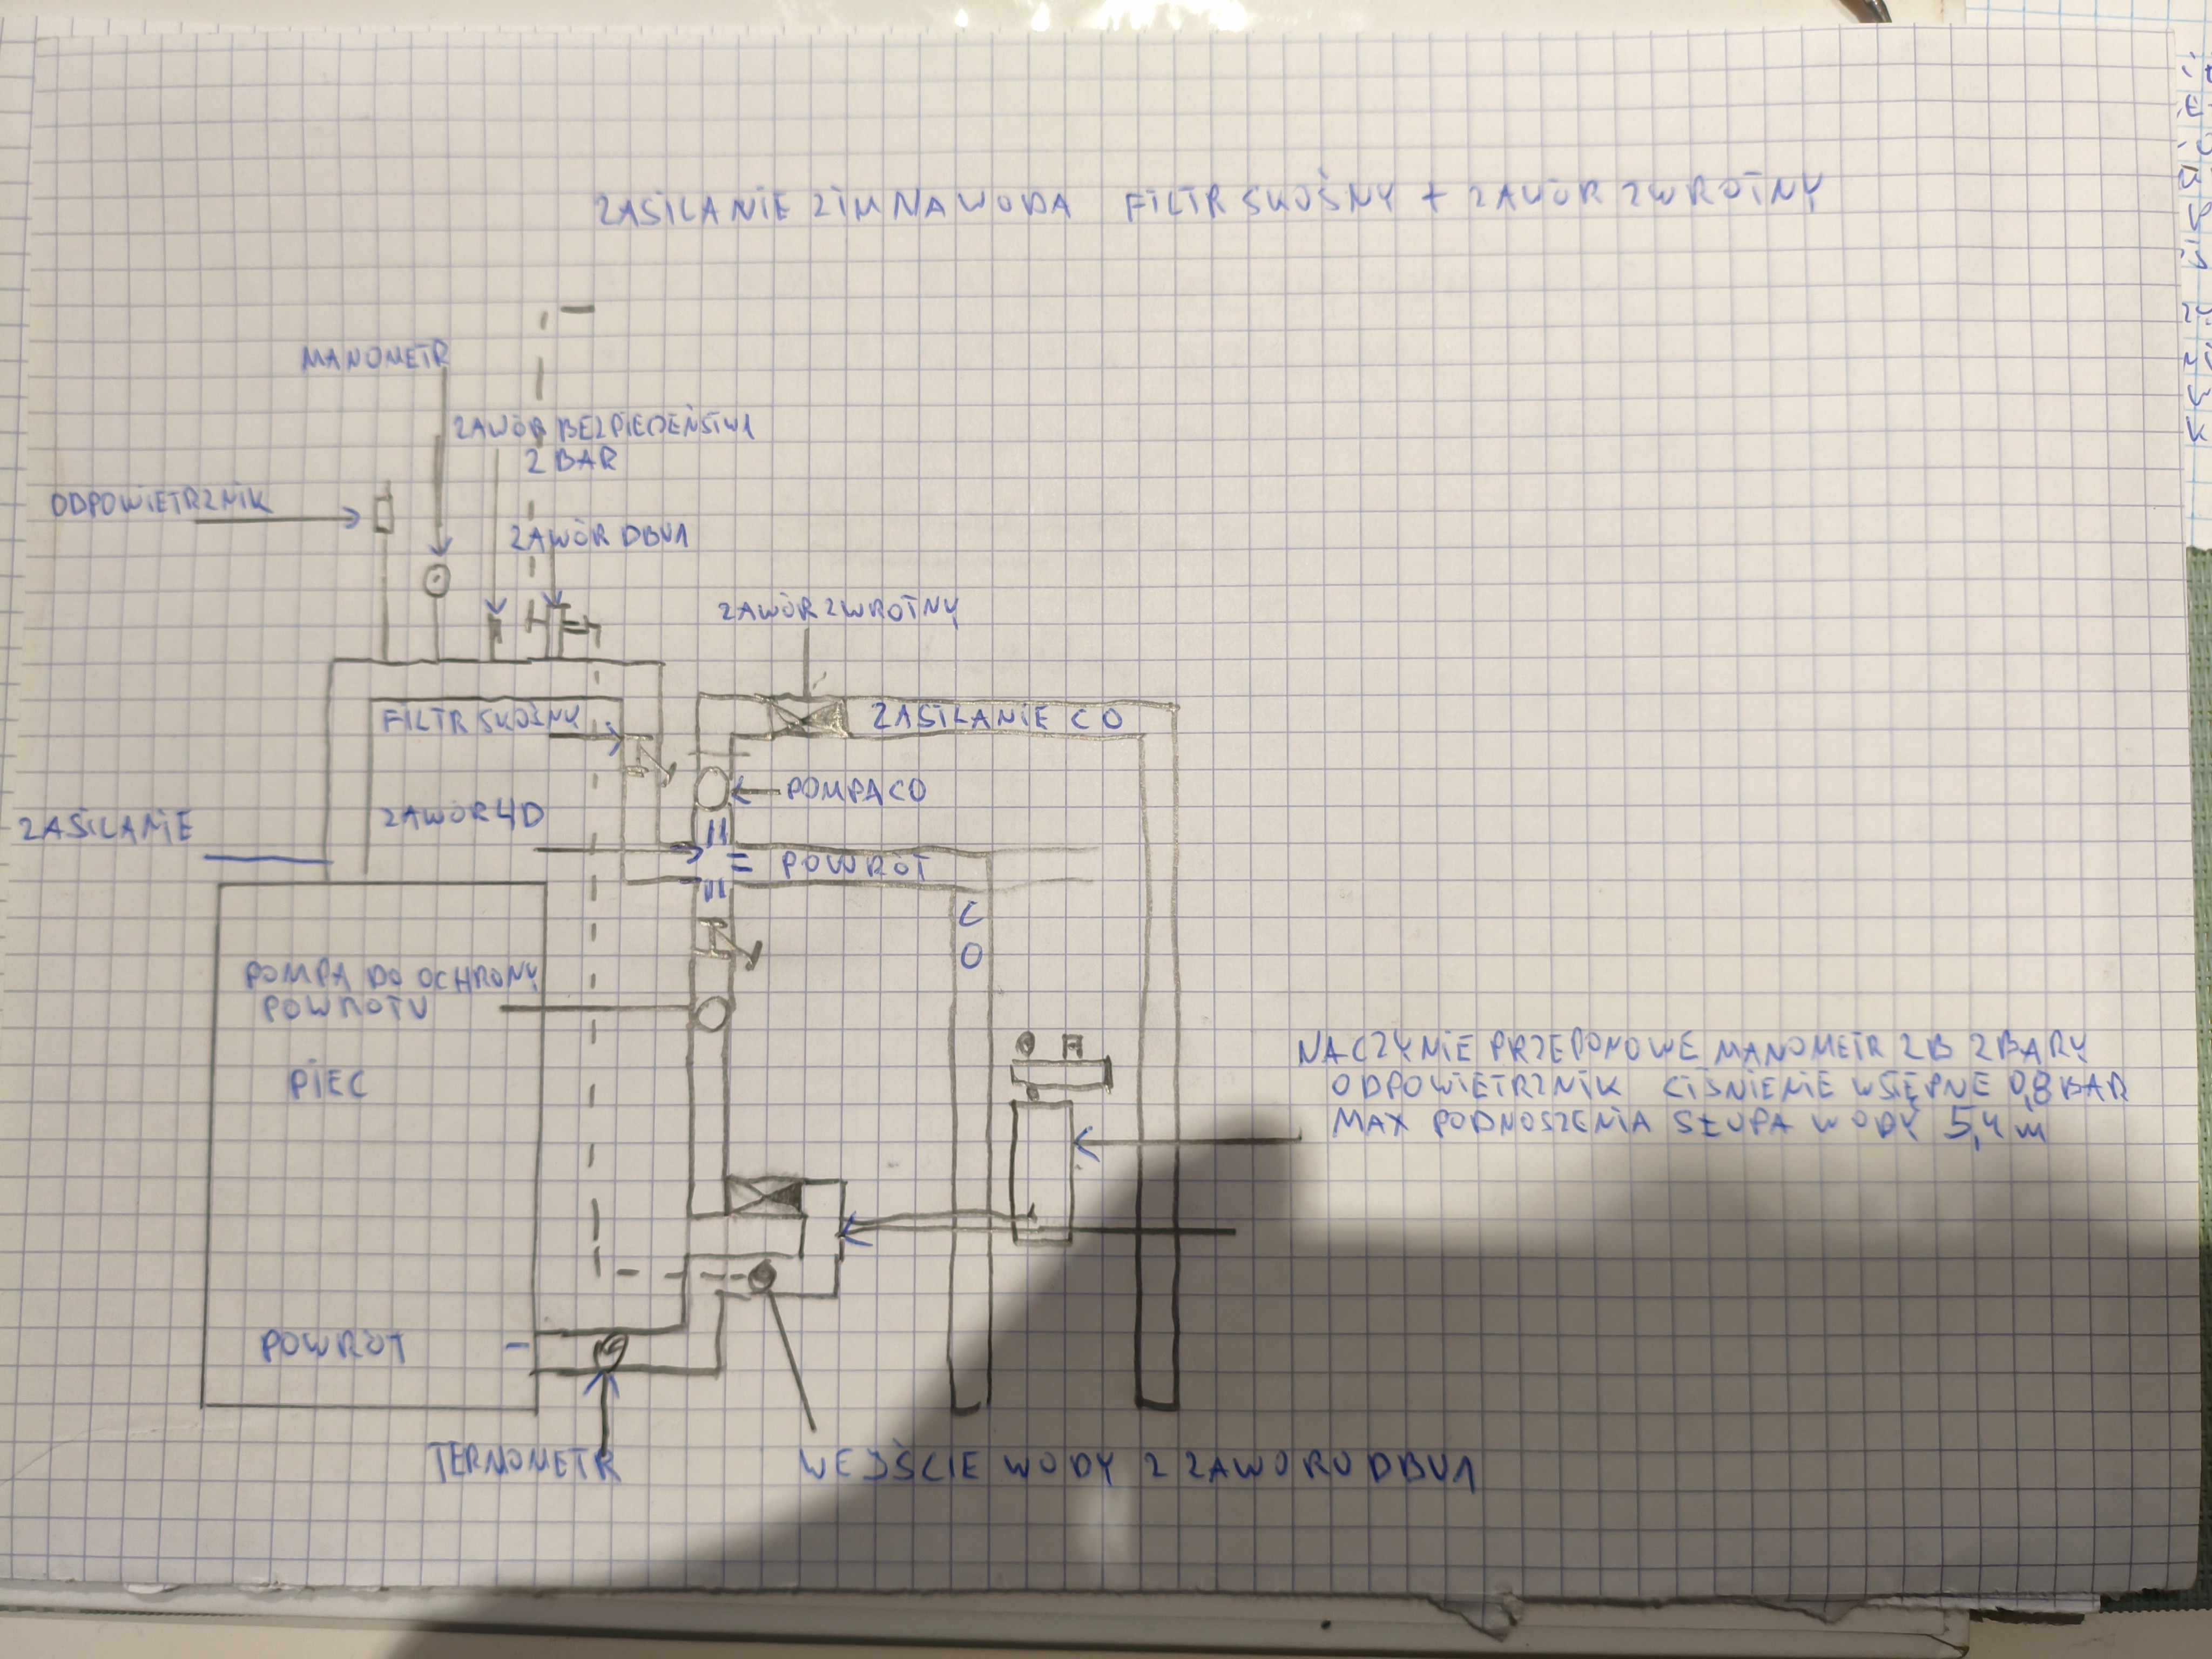 ZASILANIE ZIMNA WODA FILTR SKOŚNY + ZAWÓR ZWROTNY
MANOMETR
ZAWÓR BEZPIECEŃSTWA
2 BAR
ODPOWIETRZNIK
ZAWÓR DBV1
ZAWÓR ZWROTNY
FILTR SKOŚNY
ZASILANIE CO
POMPA CO
ZAWÓR 4D
ZASILANIE
POWRÓT
C
O
POMPA DO OCHRONY
POWROTU
PIEC
NACZYNIE PRZEPONOWE MANOMETR ZB 2 BARY
ODPOWIETRZNIK CIŚNIENIE WSTĘPNE 0,8 BAR
MAX PODNOSZENIA SŁUPA WODY 5,4 m
POWRÓT
TERMOMETR
WEJŚCIE WODY Z ZAWORU DBV1